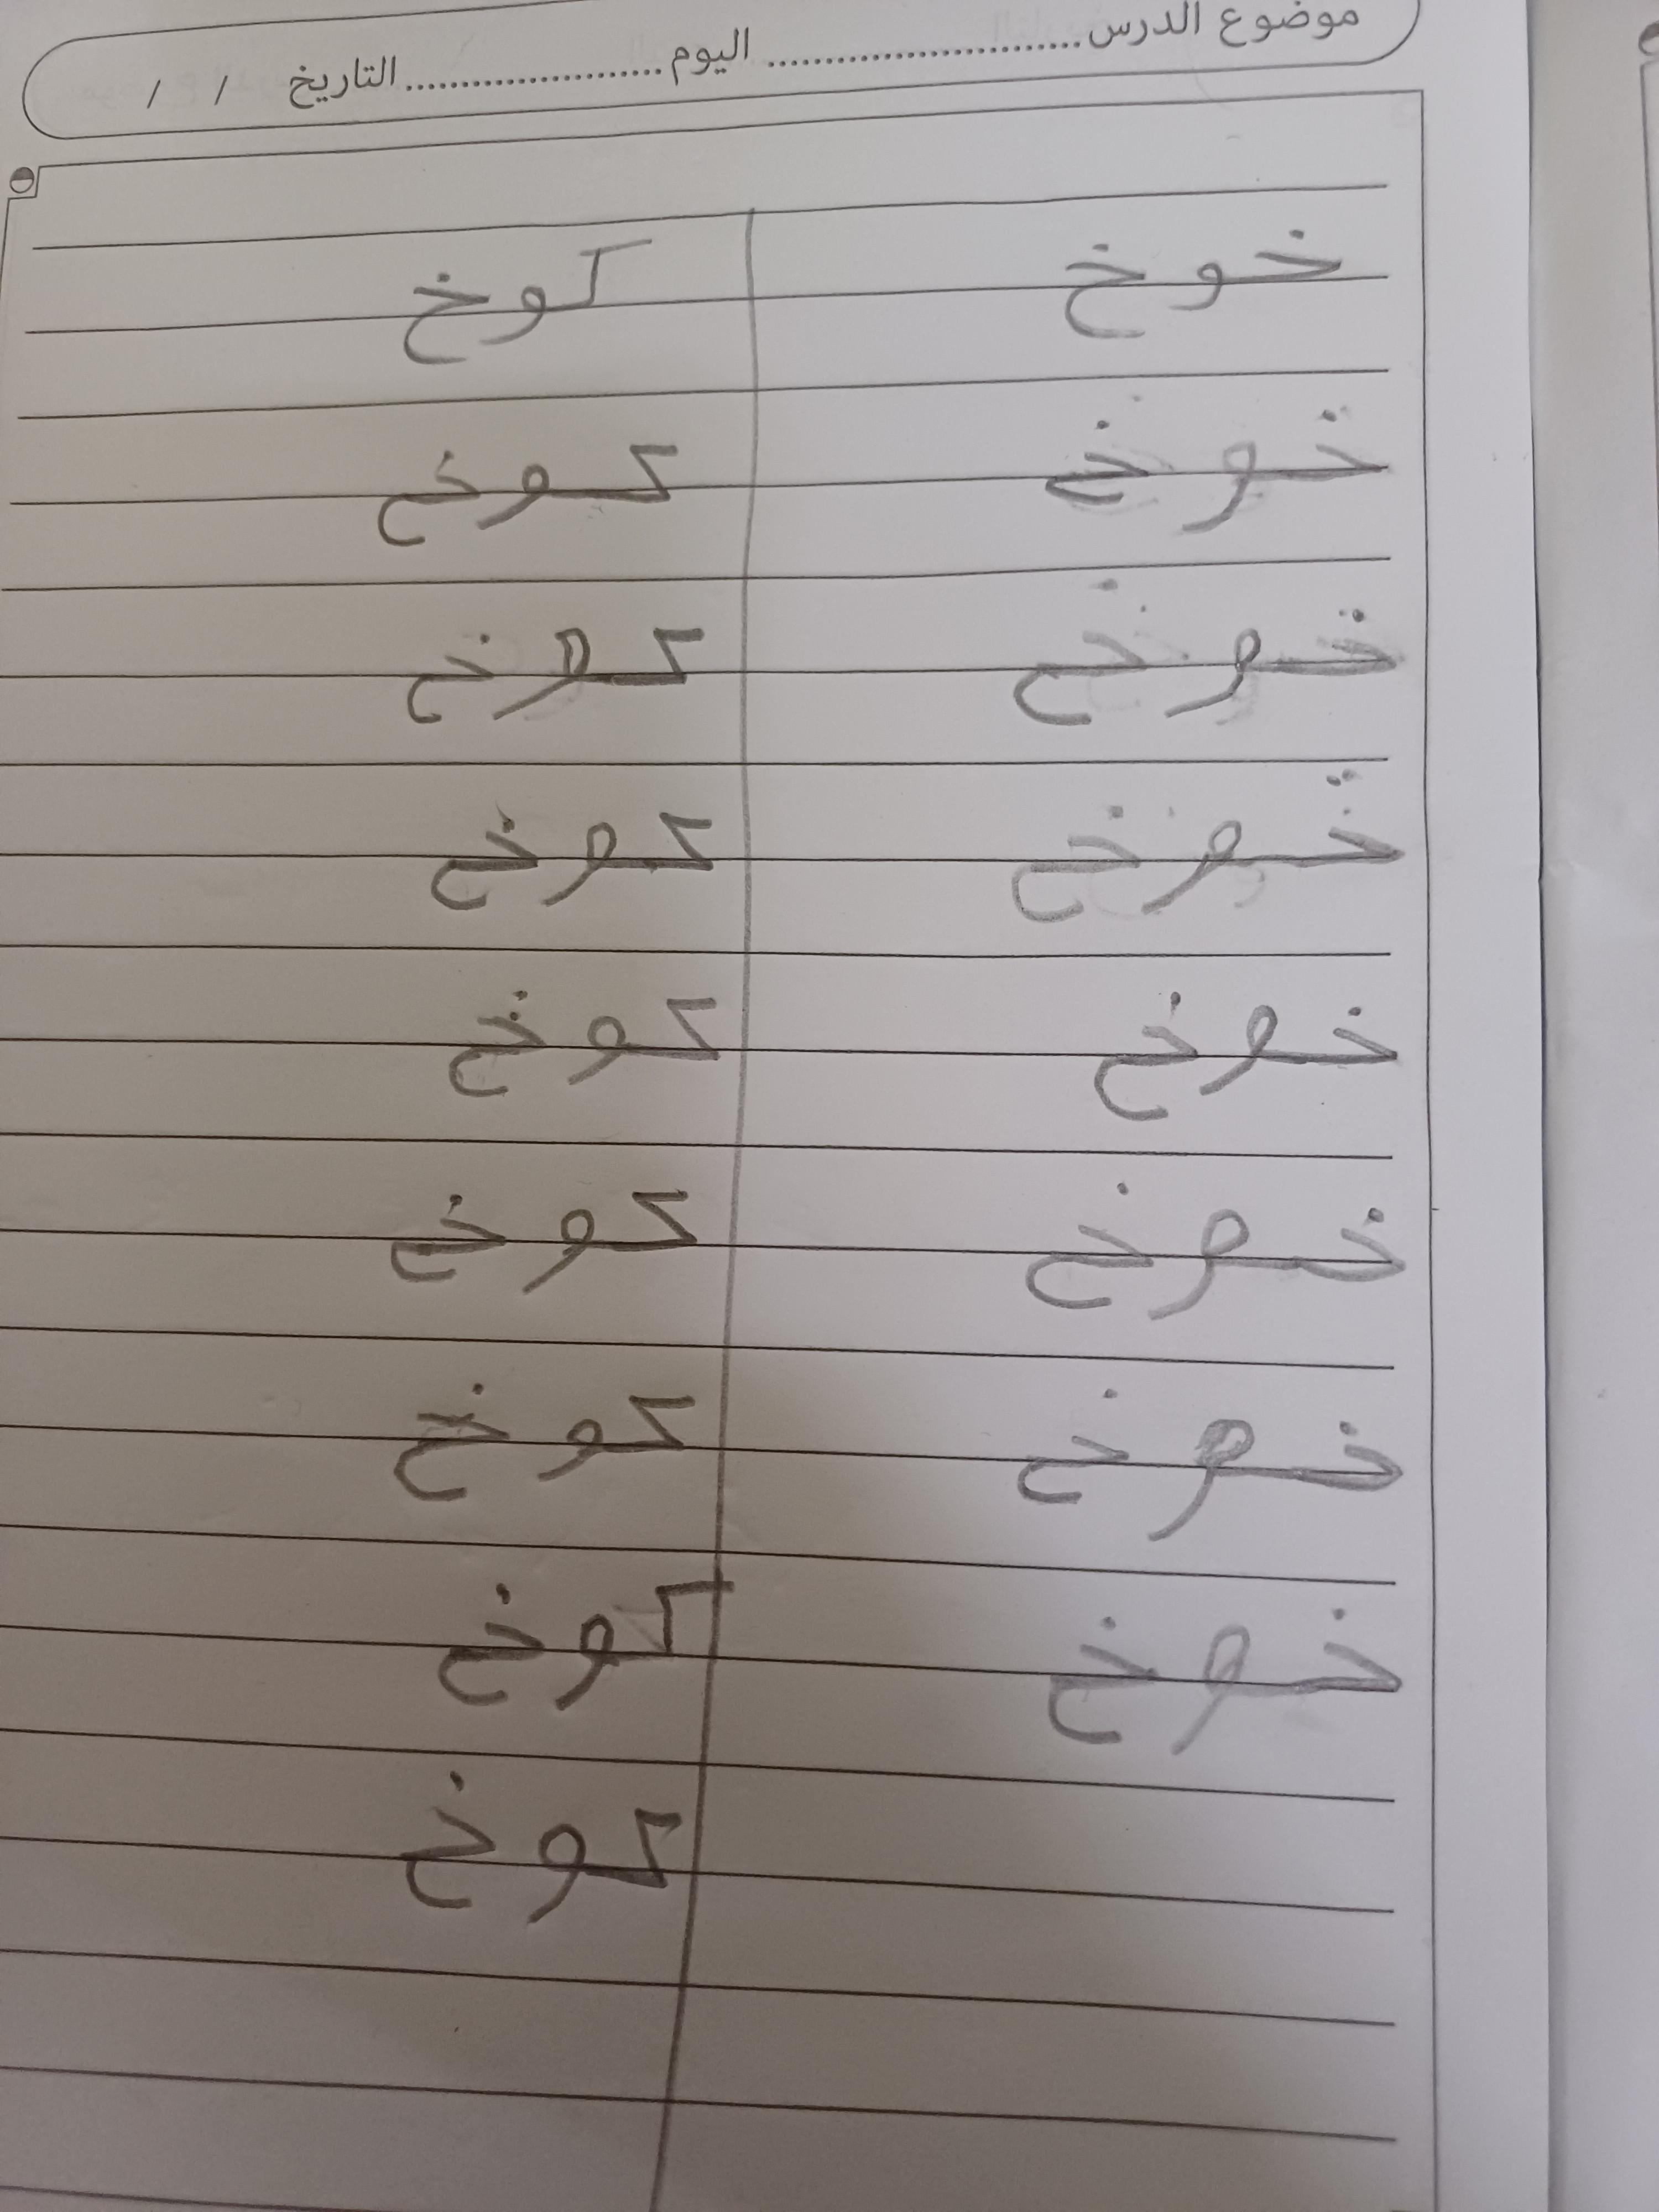 موضوع الدرس........................ اليوم....................التاريخ / /
خوخ كوخ
خوخ كوخ
خوخ كوخ
خوخ كوخ
خوخ كوخ
خوخ كوخ
خوخ كوخ
خوخ كوخ
كوخ